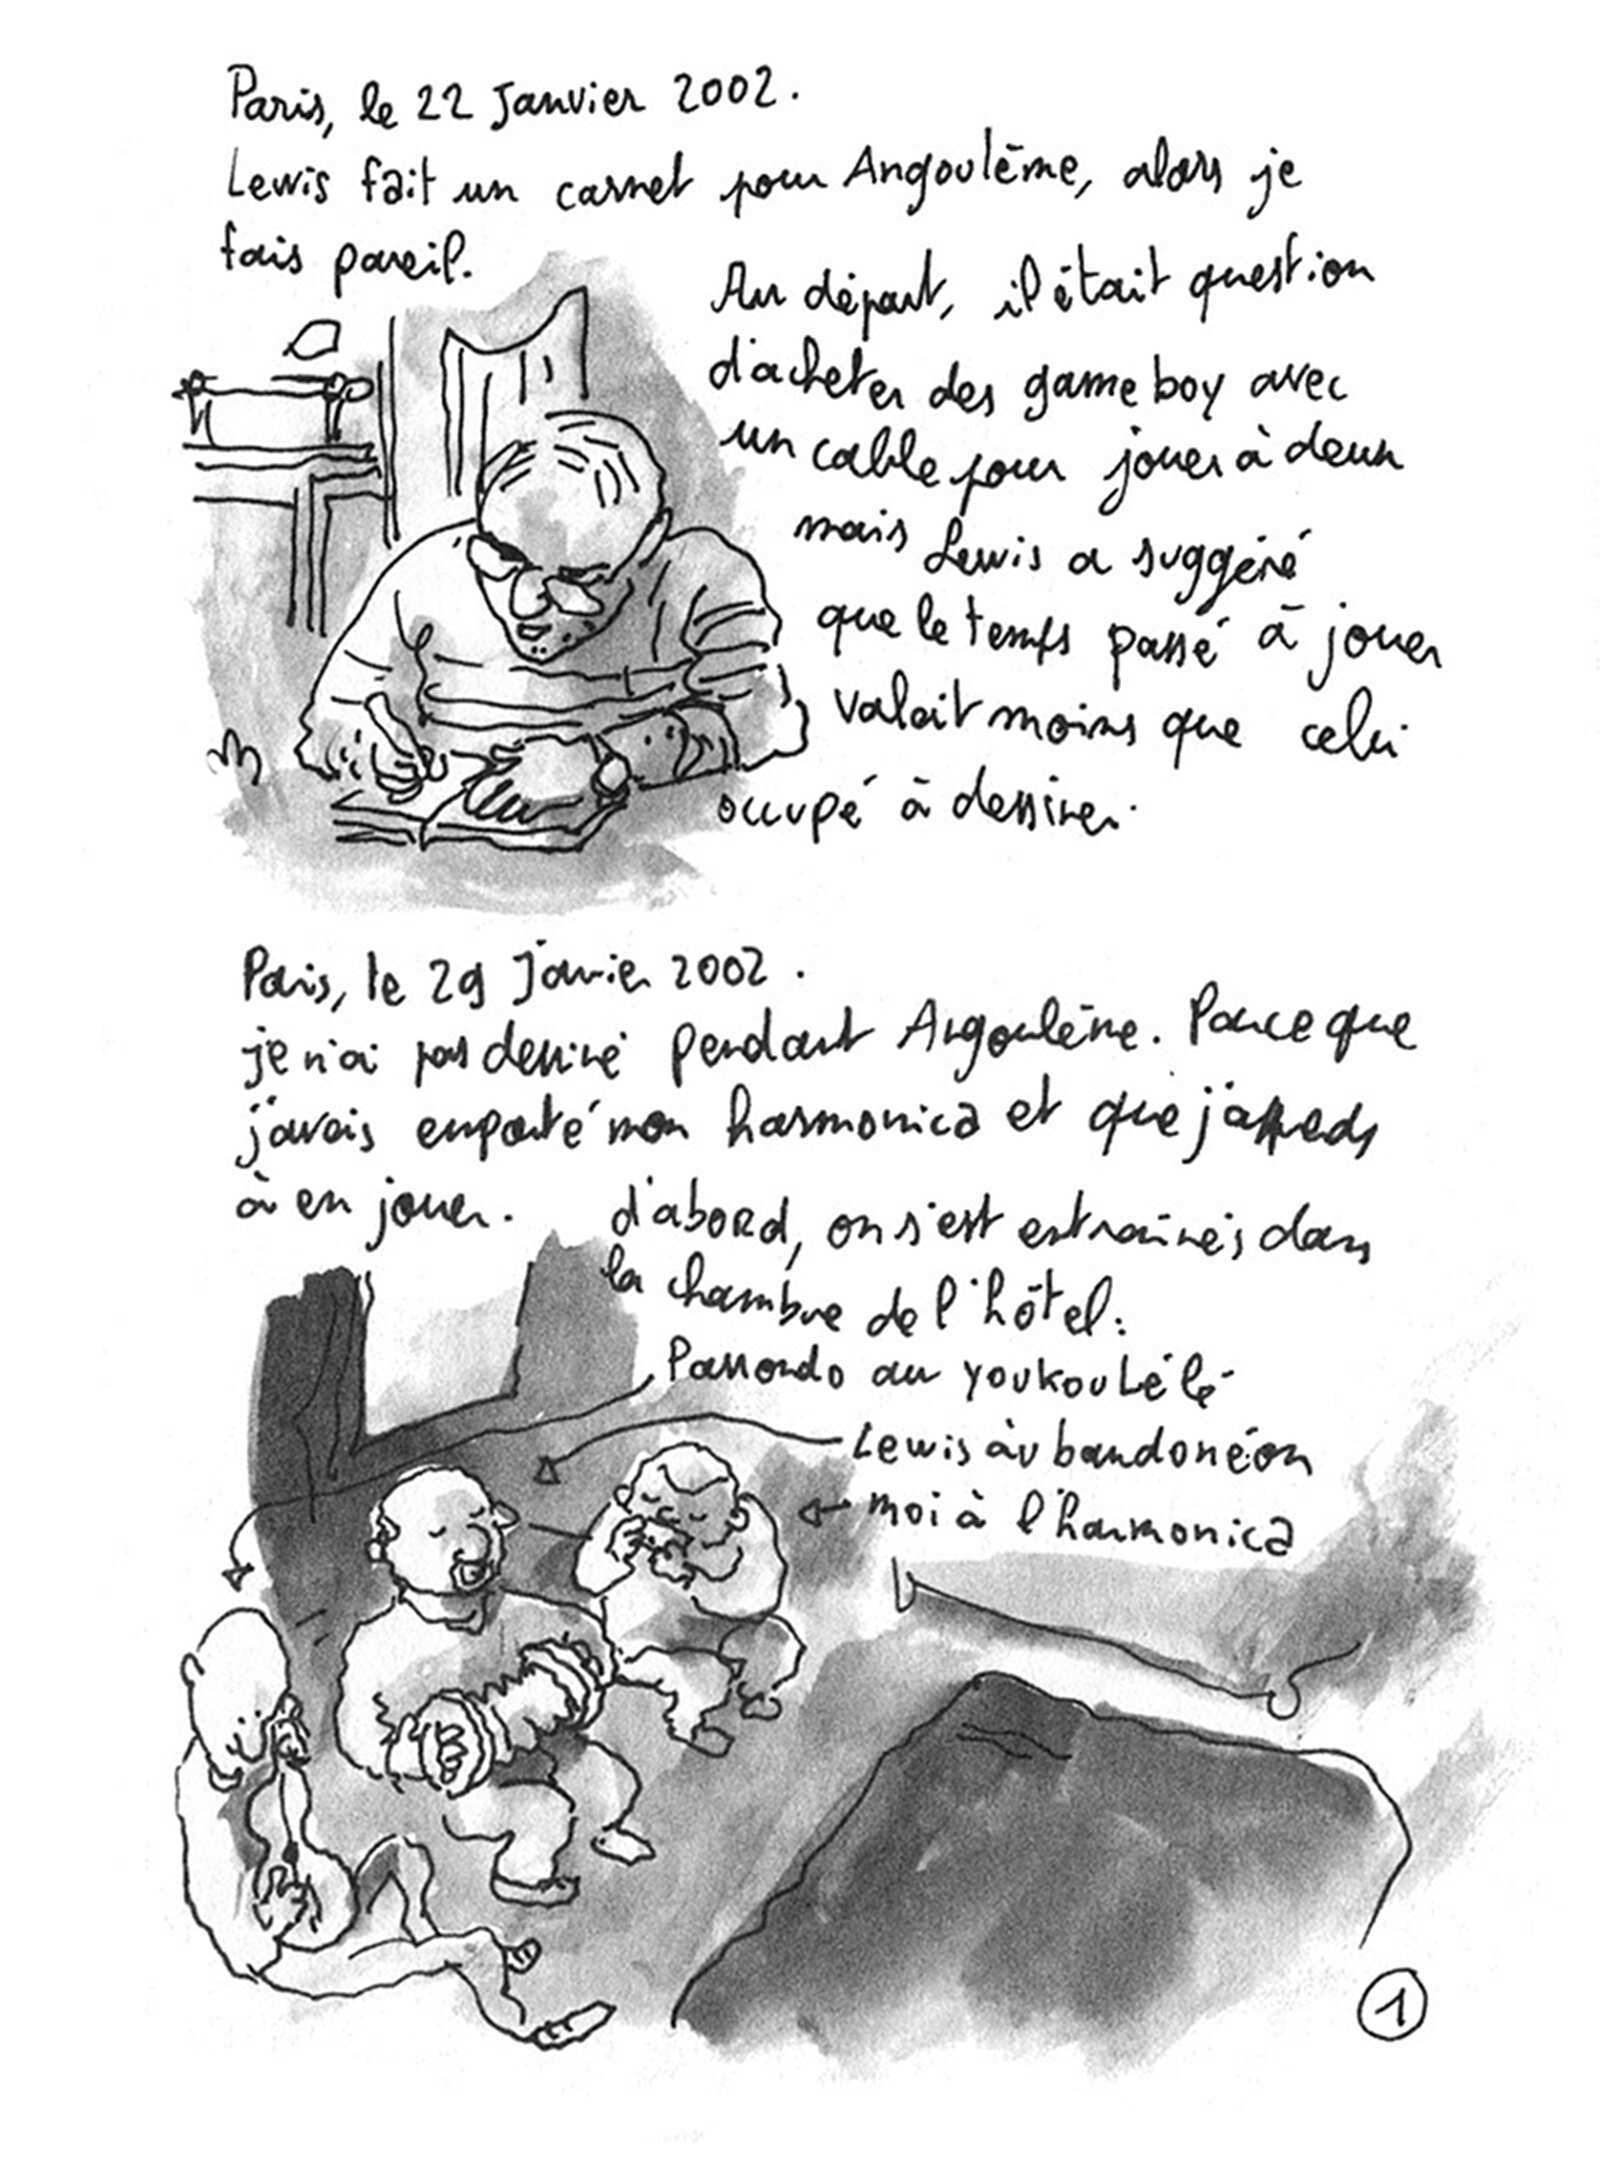 Paris, le 22 Janvier 2002.
Lewis fait un carnet pour Angoulême, alors je
fais pareil.
Au départ, il était question
d'acheter des game boy avec
un cable pour jouer à deux
mais Lewis a suggéré
que le temps passé à jouer
valait moins que celui
occupé à dessiner.
Paris, le 29 Janvier 2002.
je n'ai pas dessiné pendant Angoulême. Parce que
j'avais emporté mon harmonica et que j'apprends
à en jouer.
d'abord, on s'est entraînés dans
la chambre de l'hôtel:
Parrondo au youkoulélé
Lewis au bandonéon
moi à l'harmonica
1